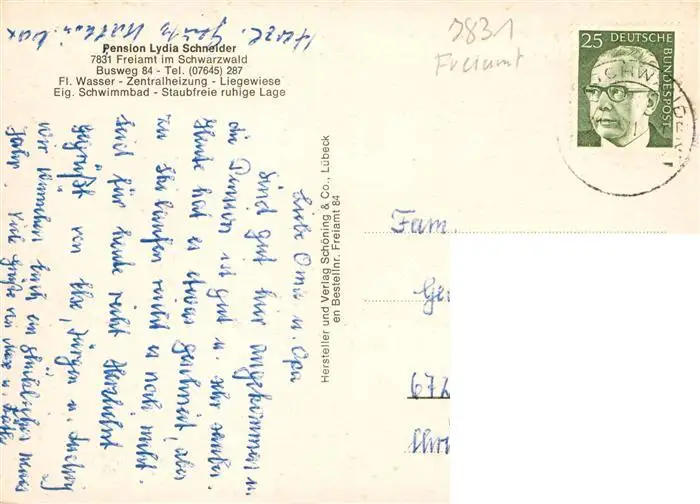 Pension Lydia Schneider
7831 Freiamt im Schwarzwald
Busweg 84 - Tel. (07645) 287
Fl. Wasser - Zentralheizung - Liegewiese
Eig. Schwimmbad - Staubfreie ruhige Lage
7831
Freiamt
25 DEUTSCHE BUNDESPOST
Liebe Oma u. Opa
sind gut hier angekommen u.
die Pension ist gut u. sehr sauber.
Heute hat es etwas geschneit, aber
zu Ski laufen reicht es noch nicht.
Seid für heute recht herzlichst
gegrüßt von Ilse, Jürgen u.
wir wünschen Euch ein glückliches neues
Jahr. Viele Grüße von
Herzl.
Hersteller und Verlag Schöning & Co., Lübeck
en Bestellnr. Freiamt 84
Fam.
672